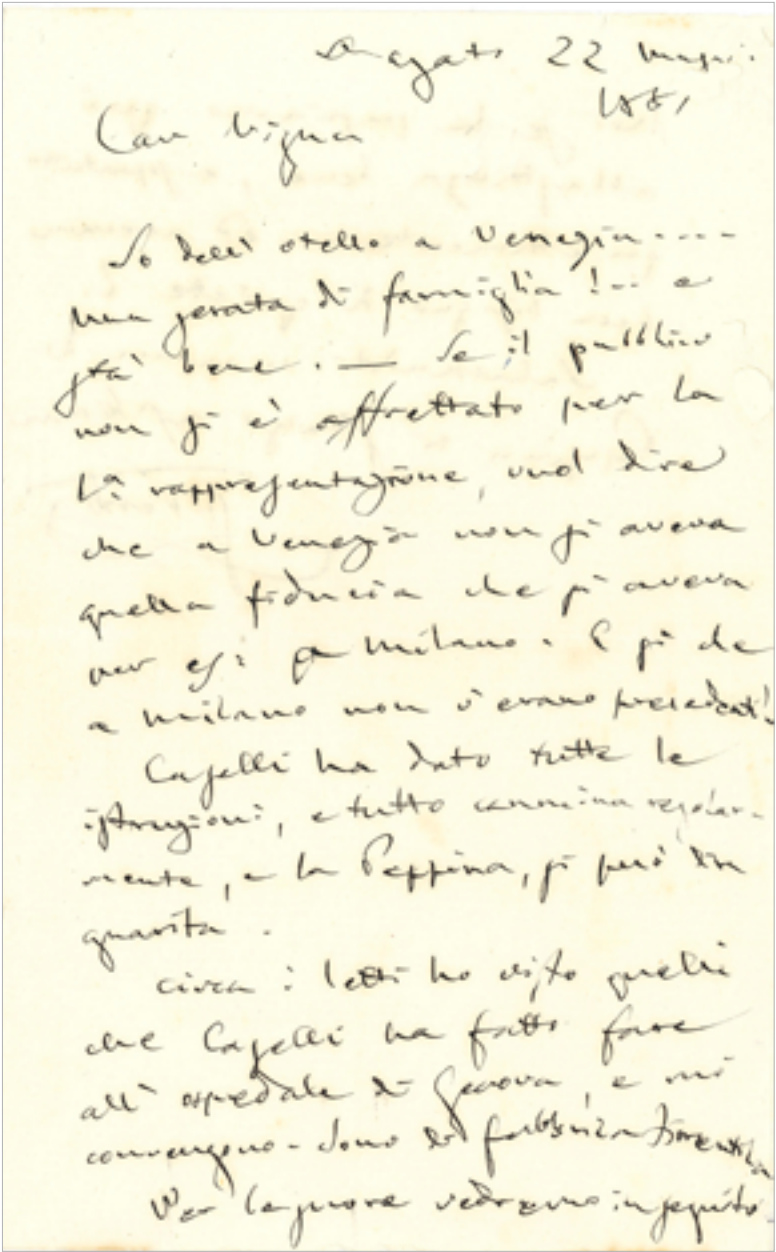 Sagata 22 Magg:
188,
Car Vigna
So dell'otello a Venezia....
una serata di famiglia!.. e
stà bene. — Se il pubblico
non si è affrettato per la
1.a rappresentazione, vuol dire
che a Venezia non si aveva
quella fiducia che si aveva
per es: a Milano. E si che
a Milano non v'erano precedenti.
Caselli ha dato tutte le
istruzioni, e tutto cammina regolar-
mente, e la Peppina, si può dir
guarita.
Circa i letti ho visto quelli
che Caselli ha fatto fare
all'ospedale di Genova, e mi
convengono. Sono di fabbrica Fiorentina
Per le suore vedremo in seguito